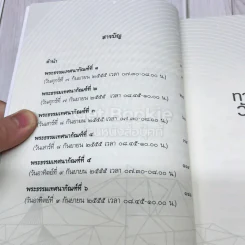 สารบัญ
คำนำ
พระธรรมเทศนากัณฑ์ที่ ๑
(วันศุกร์ที่ ๗ กันยายน ๒๕๕๕ เวลา ๐๗.๓๐-๐๘.๐๐ น.)
พระธรรมเทศนากัณฑ์ที่ ๒
(วันศุกร์ที่ ๗ กันยายน ๒๕๕๕ เวลา
พระธรรมเทศนากัณฑ์ที่ ๓
กันยายน ๒๕๕๕ เวลา ๐๗.๓๐-๐๘.๐๐ น.)
พระธรรมเทศนากัณฑ์ที่ ๔
กันยายน ๒๕๕๕ เวลา ๐๘.๔๕-๑๐.๐๐ น.)
พระธรรมเทศนากัณฑ์ที่ ๕
(วันอาทิตย์ที่ ๙ กันยายน ๒๕๕๕ เวลา ๐๗.๓๐-๐๘.๐๐ น.)
พระธรรมเทศนากัณฑ์ที่ ๖
(วันอาทิตย์ที่ ๙ กันยายน ๒๕๕๕ เวลา ๐๘.๔๕-๑๐.๐๐ น.)